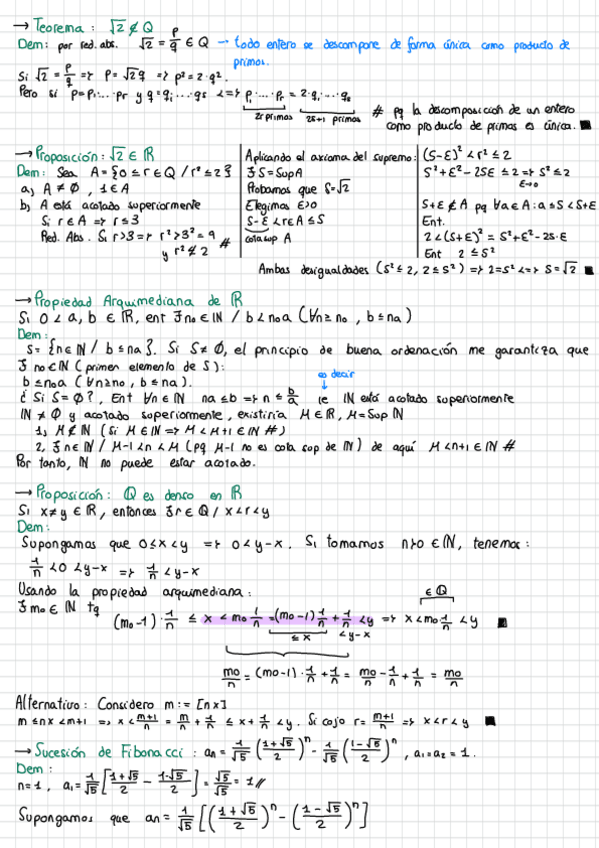 → Teorema: √2 ∉ Q
Dem: por red. abs. √2 = p/q ∈ Q → todo entero se descompone de forma única como producto de
primos.
Si √2 = p/q => p = √2 q => p² = 2·q².
Pero si p = p₁·...·pr y q = q₁·...·qs <=> p₁·...·pr = 2·q₁·...·qs
2r primos 2s+1 primos # pq la descomposición de un entero
como producto de primos es única. ■
→ Proposición: √2 ∈ ℝ
Dem: Sea A = {0 ≤ r ∈ Q / r² ≤ 2}
a) A ≠ ∅, 1 ∈ A
b) A está acotado superiormente
Si r ∈ A => r ≤ 3
Red. Abs. Si r > 3 => r² > 3² = 9
y r² ≰ 2 #
Aplicando el axioma del supremo:
∃ S = Sup A
Probamos que S = √2
Elegimos ε > 0
S - ε < r ∈ A ≤ S
cota sup A
(S-ε)² < r² ≤ 2
S² + ε² - 2Sε ≤ 2 => S² ≤ 2
ε→0
S+ε ∉ A pq ∀a ∈ A: a ≤ S < S+ε
Ent.
2 < (S+ε)² = S² + ε² - 2S·ε
Ent 2 ≤ S²
Ambas desigualdades (S² ≤ 2, 2 ≤ S²) => 2 = S² <=> S = √2 ■
→ Propiedad Arquimediana de ℝ
Si 0 < a, b ∈ ℝ, ent ∃ n₀ ∈ ℕ / b < n₀a (∀n ≥ n₀, b ≤ na)
Dem:
S = {n ∈ ℕ / b ≤ na}. Si S ≠ ∅, el principio de buena ordenación me garantiza que
∃ n₀ ∈ ℕ (primer elemento de S):
b ≤ n₀a (∀n ≥ n₀, b ≤ na).
es decir
¿Si S = ∅?, Ent ∀n ∈ ℕ na ≤ b => n ≤ b/a ie ℕ está acotado superiormente
ℕ ≠ ∅ y acotado superiormente, existiría M ∈ ℝ, M = Sup ℕ
1) M ∉ ℕ (Si M ∈ ℕ => M < M+1 ∈ ℕ #)
2) ∃ n ∈ ℕ / M-1 < n < M (pq M-1 no es cota sup de ℕ) de aquí M < n+1 ∈ ℕ #
Por tanto, ℕ no puede estar acotado.
→ Proposición: Q es denso en ℝ
Si x ≠ y ∈ ℝ, entonces ∃ r ∈ Q / x < r < y
Dem:
Supongamos que 0 ≤ x < y => 0 < y-x. Si tomamos n > 0 ∈ ℕ, tenemos:
1/n < 0 < y-x => 1/n < y-x
Usando la propiedad arquimediana:
∈ Q
∃ m₀ ∈ ℕ tq (m₀-1)·1/n ≤ x < m₀ 1/n = (m₀-1) 1/n + 1/n < y => x < m₀ 1/n < y ■
≤ x < y-x
m₀/n = (m₀-1)·1/n + 1/n = m₀/n - 1/n + 1/n = m₀/n
Alternativo: Considero m := [nx]
m ≤ nx < m+1 => x < m+1/n = m/n + 1/n ≤ x + 1/n < y. Si cojo r = m+1/n => x < r < y ■
→ Sucesión de Fibonacci: an = 1/√5 (1+√5/2)ⁿ - 1/√5 (1-√5/2)ⁿ, a₁ = a₂ = 1.
Dem:
n=1, a₁ = 1/√5 [1+√5/2 - 1-√5/2] = √5/√5 = 1 //
Supongamos que an = 1/√5 [(1+√5/2)ⁿ - (1-√5/2)ⁿ]